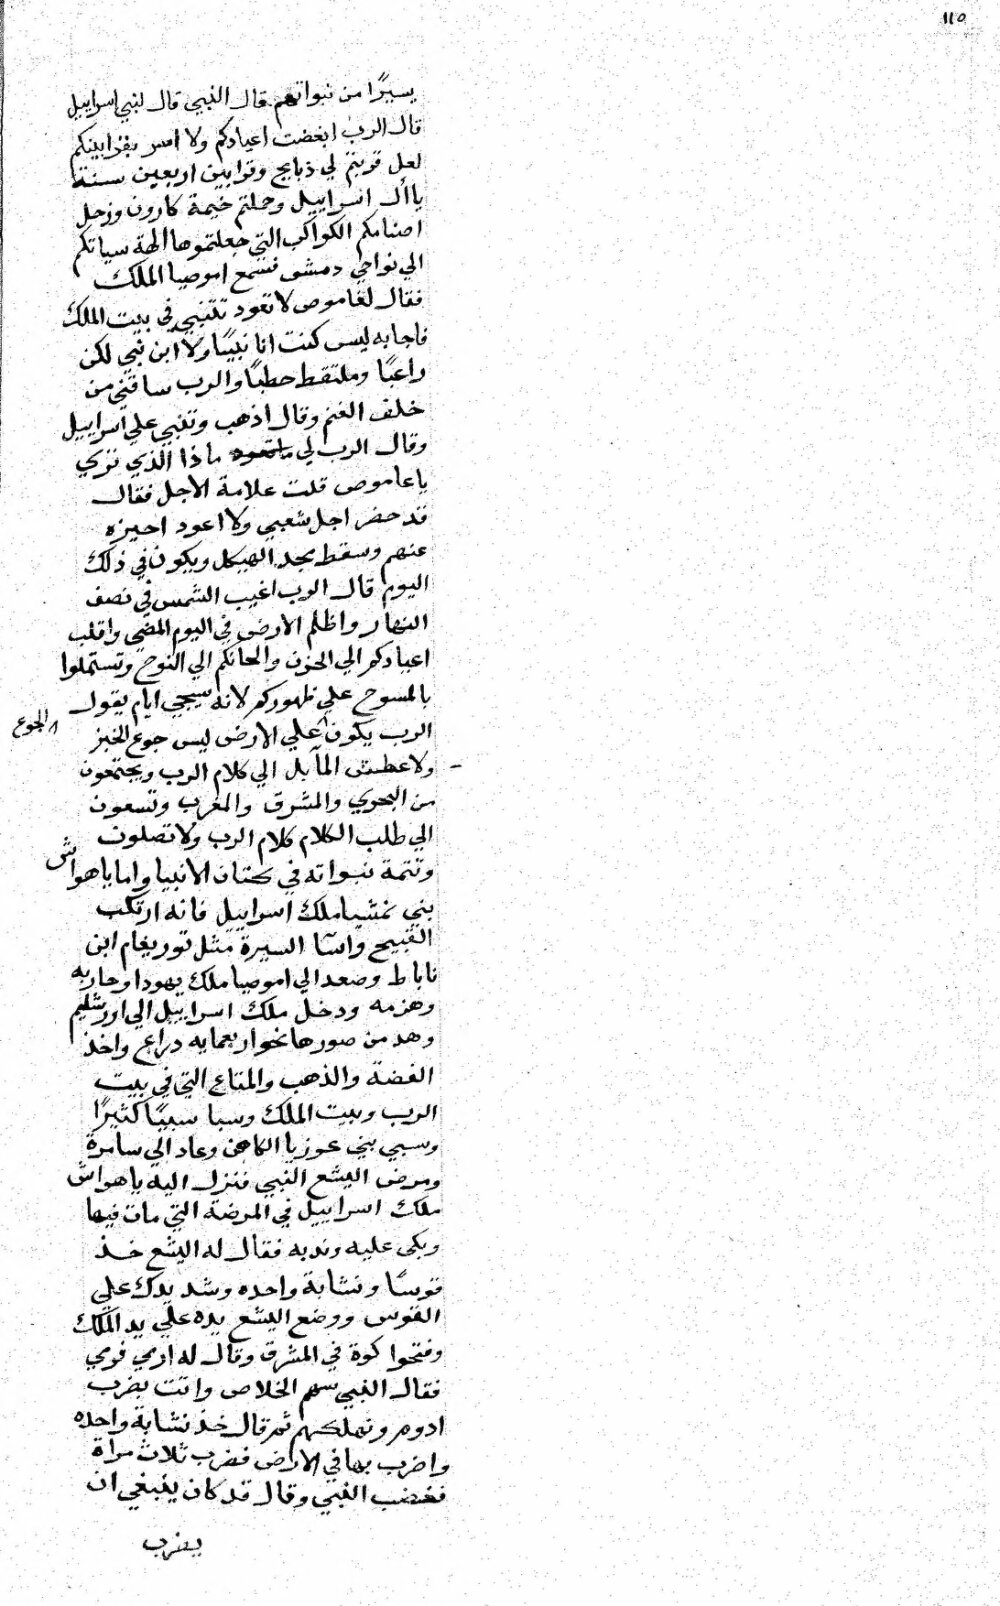 ١١٥
يسيرًا من نبواتهم قال النبي قال لبني اسراييل
قال الرب ابغضت اعيادكم ولا اسر بقرابينكم
لعل قربتم لي ذبايح وقرابين اربعين سنة
ياأل اسراييل وحملتم خيمة كارون وزحل
اصنامكم الكواكب التي جعلتموها الهة سياتكم
الي نواحي دمشق فسمع اموصيا الملك
فقال لغاموص لا تعود تتنبي في بيت الملك
فاجابه ليس كنت انا نبيًا ولا ابن نبي لكن
راعيًا وملتقط حطبًا والرب ساقني من
خلف الغنم وقال اذهب وتنبي علي اسراييل
وقال الرب لي ماذا الذي تري
ياعاموص قلت علامة الاجل فقال
قد حضر اجل شعبي ولا اعود احيزه
عنهم وسقط مجد الهيكل ويكون في ذلك
اليوم قال الرب اغيب الشمس في نصف
النهار واظلم الارض في اليوم المضي واقلب
اعيادكم الي الحزن والحانكم الي النوح وتستملوا
بالمسوح علي ظهوركم لانه سيجي ايام يقول
الرب يكون علي الارض ليس جوع الخبز
الجوع
ولا عطش المآ بل الي كلام الرب ويجتمعون
من البحري والمشرق والمغرب وتسعون
الي طلب الكلام كلام الرب ولا تصلون
وتتمة نبواته في كتاب الانبيا واما ياهواش
بني نمشيا ملك اسراييل فانه ارتكب
القبيح واسآ السيرة مثل توربغام ابن
ناباط وصعد الي اموصيا ملك يهودا وحاربه
وهزمه ودخل ملك اسراييل الي اورشليم
وهد من صورها نحو اربعمايه دراع واخذ
الفضة والذهب والمتاع التي في بيت
الرب وبيت الملك وسبا سبيًا كثيرًا
وسبي بني عوزيا الكاهن وعاد الي سامرة
ومرض اليشع النبي فنزل اليه ياهواش
ملك اسراييل في المرضة التي مات فيها
وبكي عليه وندبه فقال له اليشع خذ
قوسًا ونشابة واحده وشد يدك علي
القوس ووضع اليشع يده علي يد الملك
وفتحوا كوة في المشرق وقال له ارمي فرمي
فقال النبي سهم الخلاص وانت بضرب
ادوم وتهلكهم ثم قال خذ نشابة واحده
واضرب بها في الارض فضرب ثلاث مراة
فغضب النبي وقال قد كان ينبغي ان
يضرب